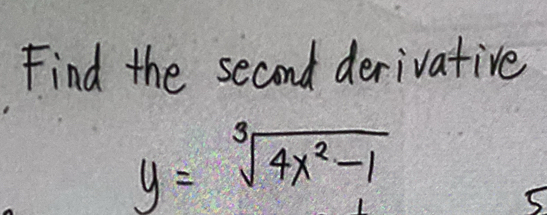 Find the second derivative
y = ∛(4x² - 1)
5